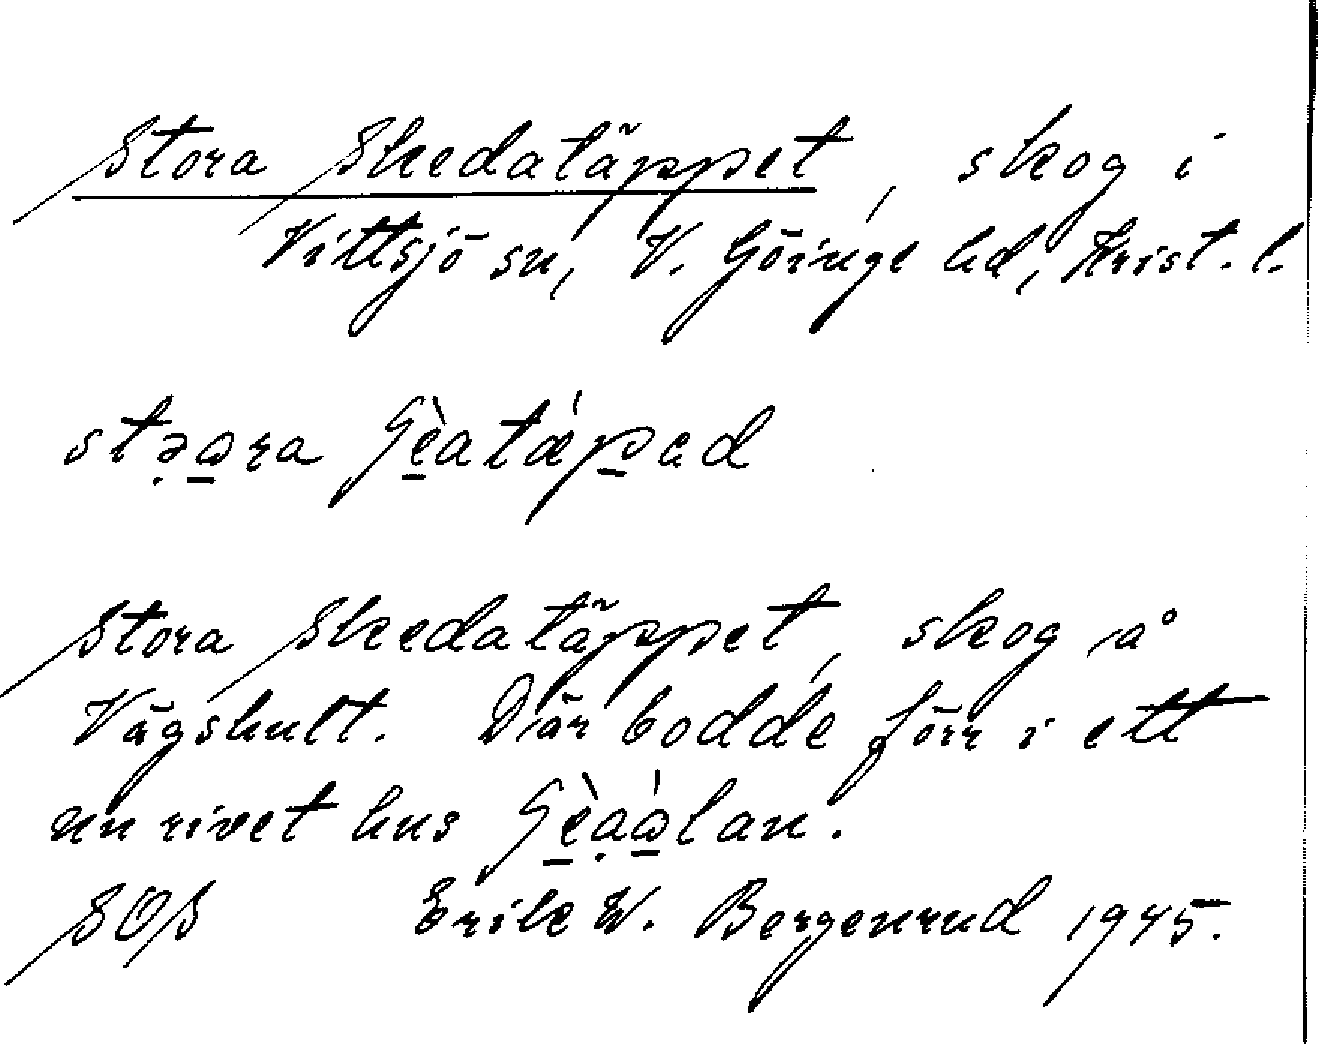 Stora Skedatäppet, skog i
Vittsjö sn, V. Göinge hd, Krist. l.
Stora Skedatäppet, skog på
Vågshult. Där bodde förr i ett
nu rivet hus
SOS Erik W. Bergenrud 1945.